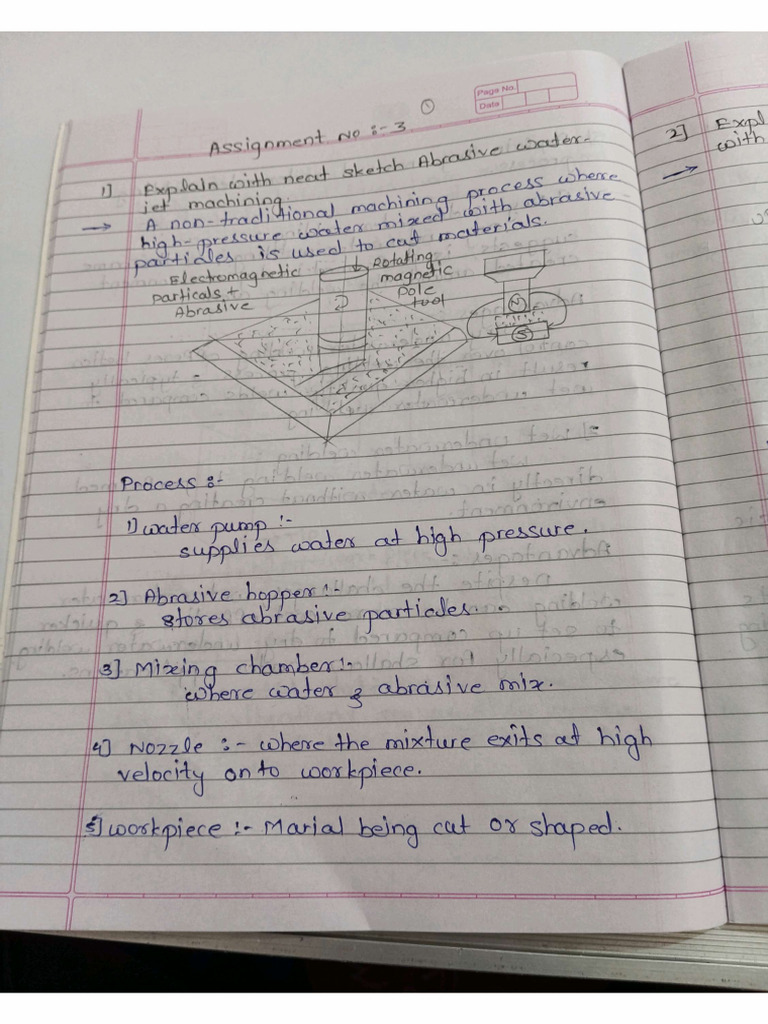 Page No.
Date
①
Assignment No :- 3
1] Explain with neat sketch Abrasive water-
jet machining.
→ A non-traditional machining process where
high-pressure water mixed with abrasive
particles is used to cut materials.
Electromagnetic
particals +
Abrasive
Rotating
magnetic
pole
tool
N
S
Process :-
1) water pump :-
supplies water at high pressure.
2] Abrasive hopper :-
stores abrasive particles.
3] Mixing chamber :-
where water & abrasive mix.
4] Nozzle :- where the mixture exits at high
velocity on to workpiece.
5] workpiece :- Marial being cut or shaped.
2] Expl
with
→